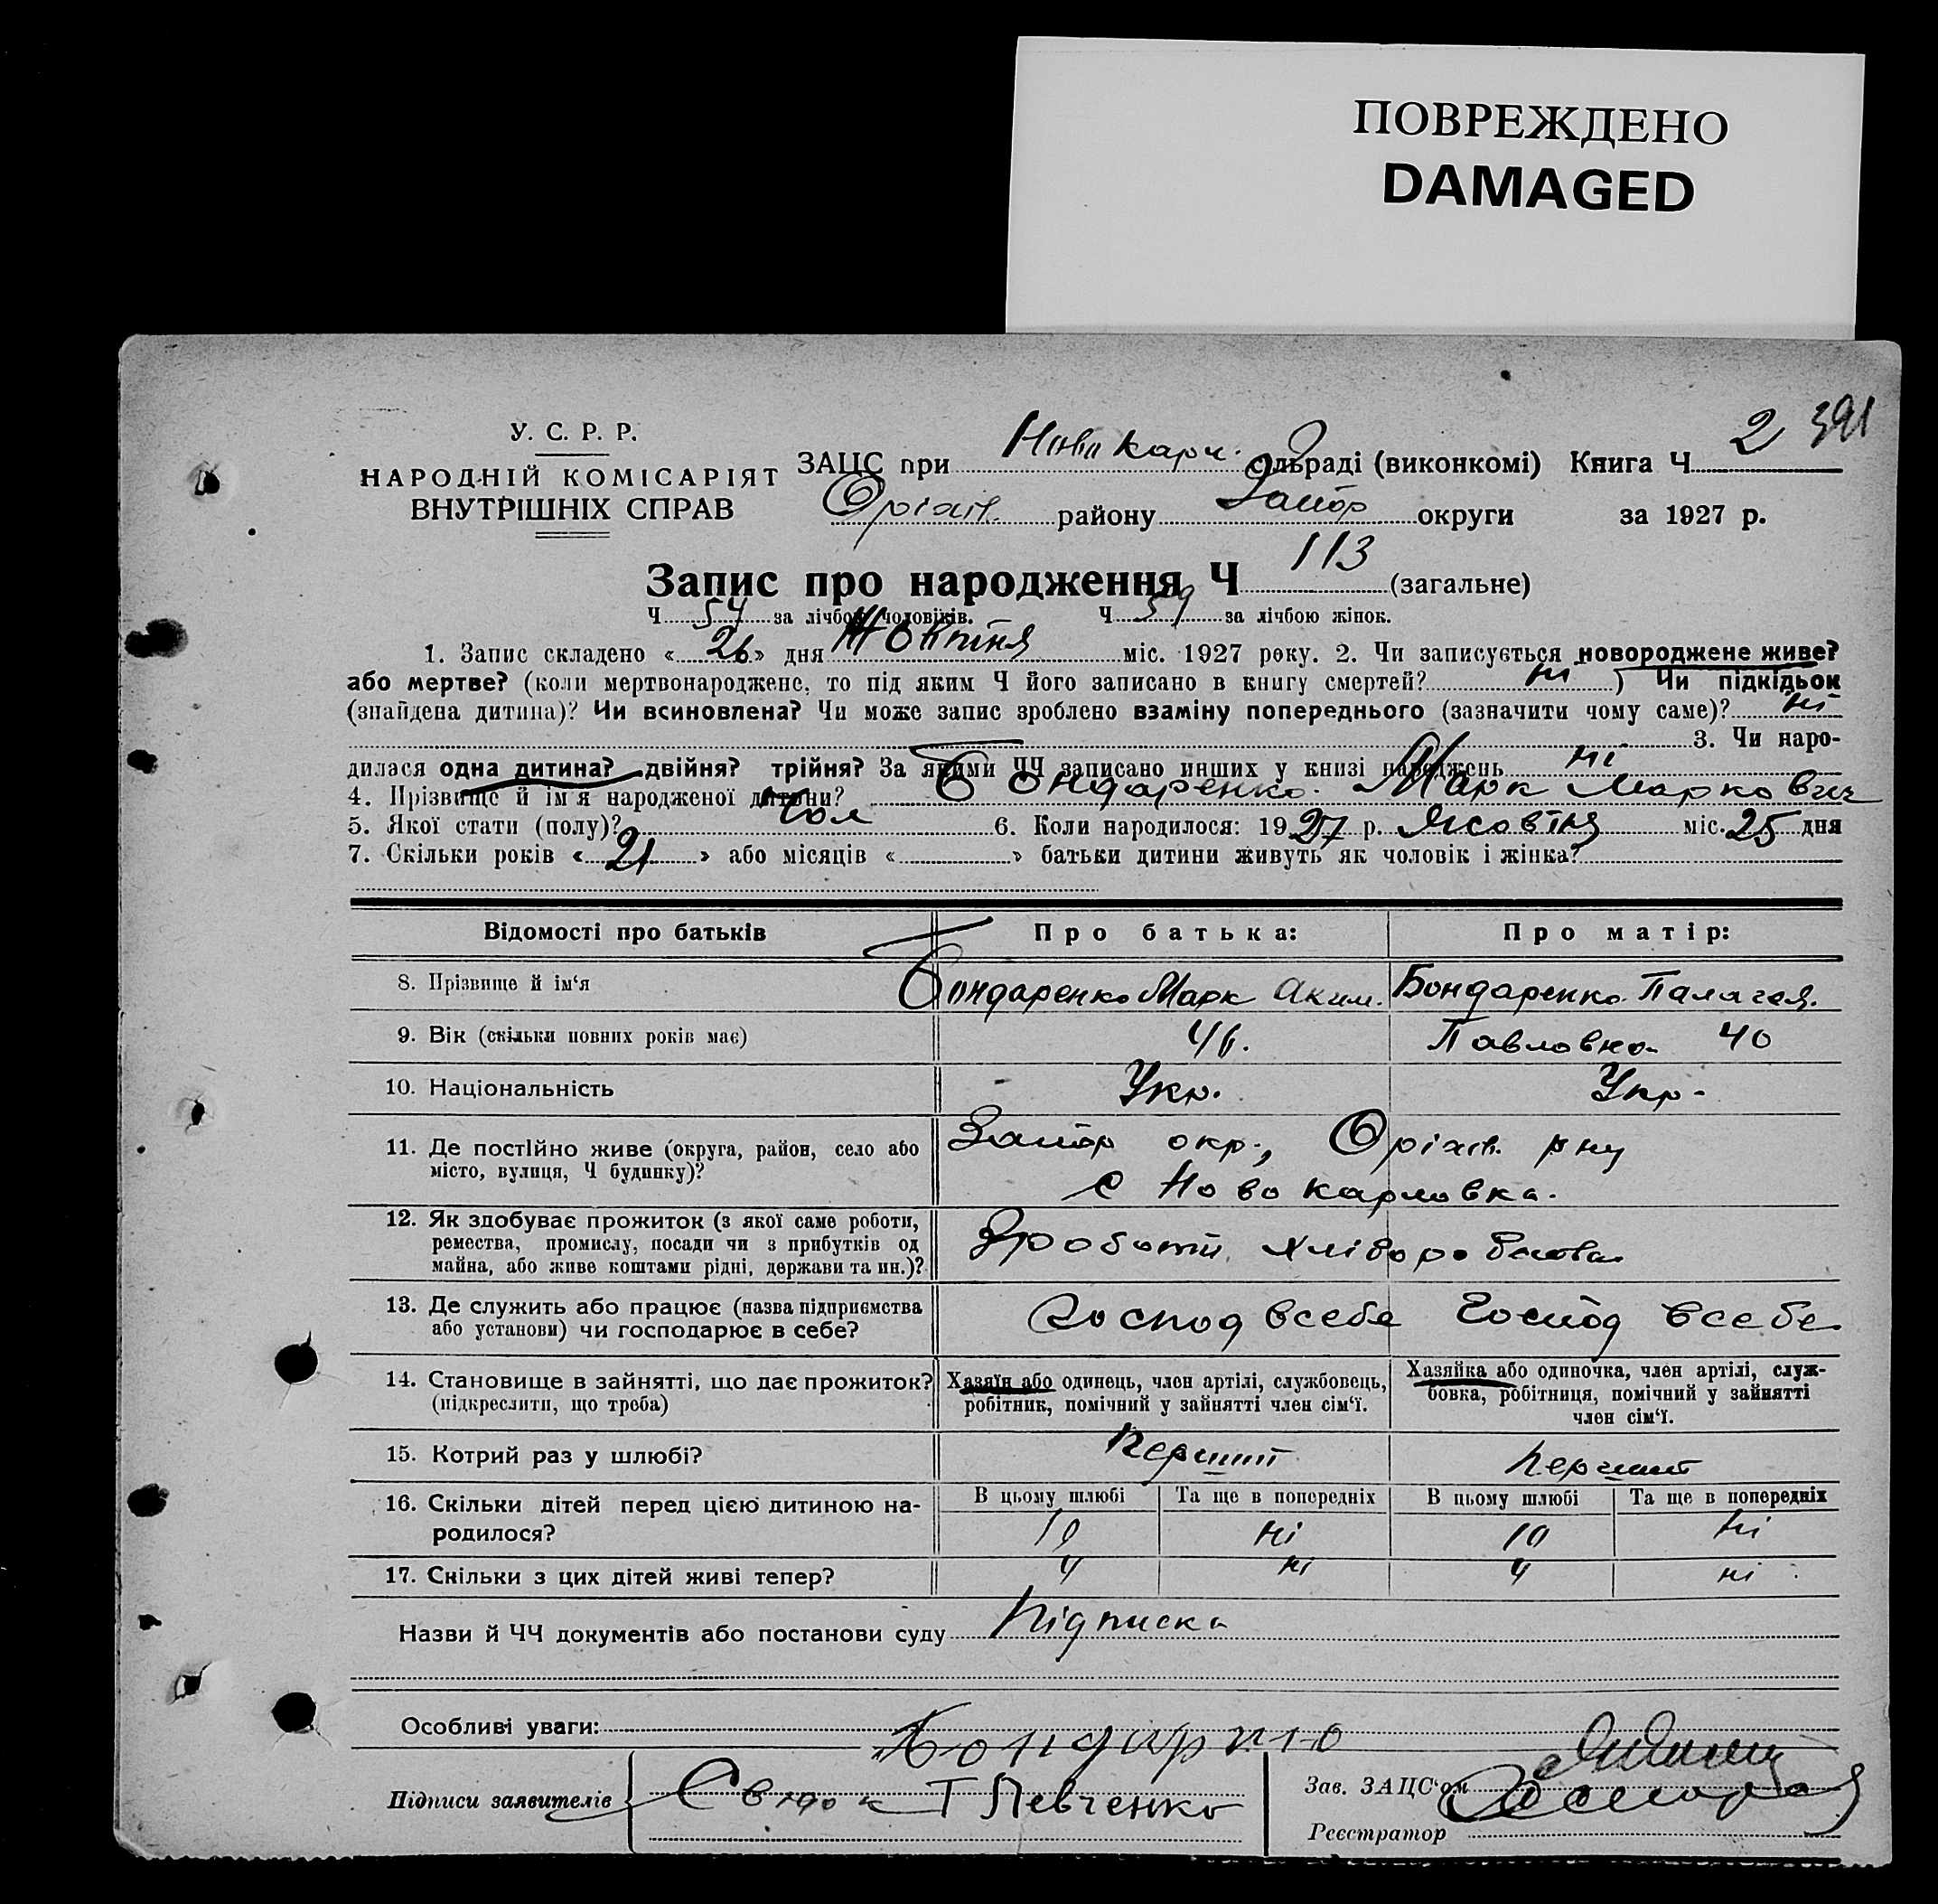 ПОВРЕЖДЕНО
DAMAGED
2 391
У. С. Р. Р.
НАРОДНІЙ КОМІСАРІЯТ
ВНУТРІШНІХ СПРАВ
ЗАЦС при Ново карл. сільраді (виконкомі) Книга Ч
Оріхів. району Запор округи за 1927 р.
Запис про народження Ч 113 (загальне)
Ч 54 за лічбою чоловіків. Ч 59 за лічбою жінок.
1. Запис складено « 26 » дня Жовтня міс. 1927 року. 2. Чи записується новороджене живе?
або мертве? (коли мертвонароджене, то під яким Ч його записано в книгу смертей? ні ) Чи підкідьок
(знайдена дитина)? Чи всиновлена? Чи може запис зроблено взаміну попереднього (зазначити чому саме)? ні
3. Чи наро-
дилася одна дитина? двійня? трійня? За якими ЧЧ записано инших у книзі народжень ні
4. Прізвище й ім'я народженої дитини? Бондаренко Марк Маркович
5. Якої стати (полу)? Чол 6. Коли народилося: 1927 р. Жовтня міс. 25 дня
7. Скільки років « 21 » або місяців « » батьки дитини живуть як чоловік і жінка?
Відомості про батьків Про батька: Про матір:
8. Прізвище й ім'я Бондаренко Марк Аким. Бондаренко Палагея
9. Вік (скільки повних років має) Павловна 40
10. Національність Укр. Укр.
11. Де постійно живе (округа, район, село або
місто, вулиця, Ч будинку)?
Запор окр., Оріхів. р ну
с Ново карловка.
12. Як здобуває прожиток (з якої саме роботи,
ремества, промислу, посади чи з прибутків од
майна, або живе коштами рідні, держави та ин.)?
Зроботи
13. Де служить або працює (назва підприємства
або установи) чи господарює в себе?
Господ всебе Господ всебе
14. Становище в зайнятті, що дає прожиток?
(підкреслити, що треба)
Хазяїн або одинець, член артілі, службовець,
робітник, помічний у зайнятті член сім'ї.
Хазяйка або одиночка, член артілі, служ-
бовка, робітниця, помічний у зайнятті
член сім'ї.
15. Котрий раз у шлюбі? Перший Перший
16. Скільки дітей перед цією дитиною на-
родилося?
В цьому шлюбі Та ще в попередніх В цьому шлюбі Та ще в попередніх
10 ні 10 ні
17. Скільки з цих дітей живі тепер? 4 ні 4 ні
Назви й ЧЧ документів або постанови суду Підписка
Особливі уваги:
Підписи заявителів
Свідок Т Левченко
Зав. ЗАЦС'ом
Реєстратор